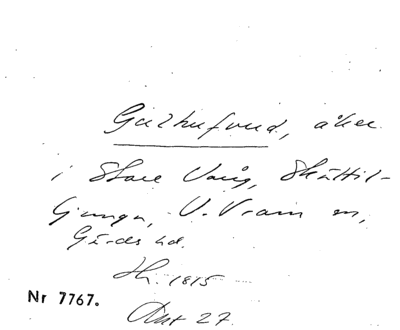 Galhufvud, åker
i Store Vång, Skättil-
ljunga, V. Vram sn,
Gärds hd.
1815
Nr 7767.
Akt 27